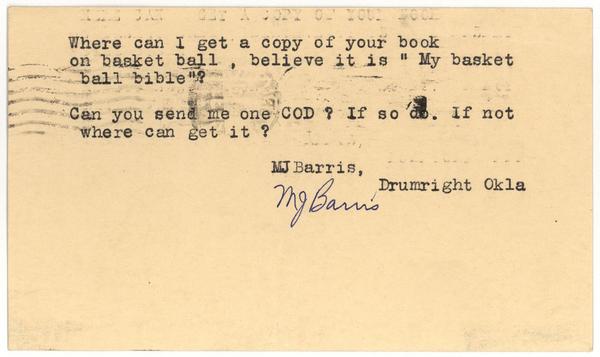 Where can I get a copy of your book
on basket ball , believe it is " My basket
ball bible"?
Can you send me one COD ? If so do. If not
where can get it ?
MJBarris,
Drumright Okla
MJ Barris